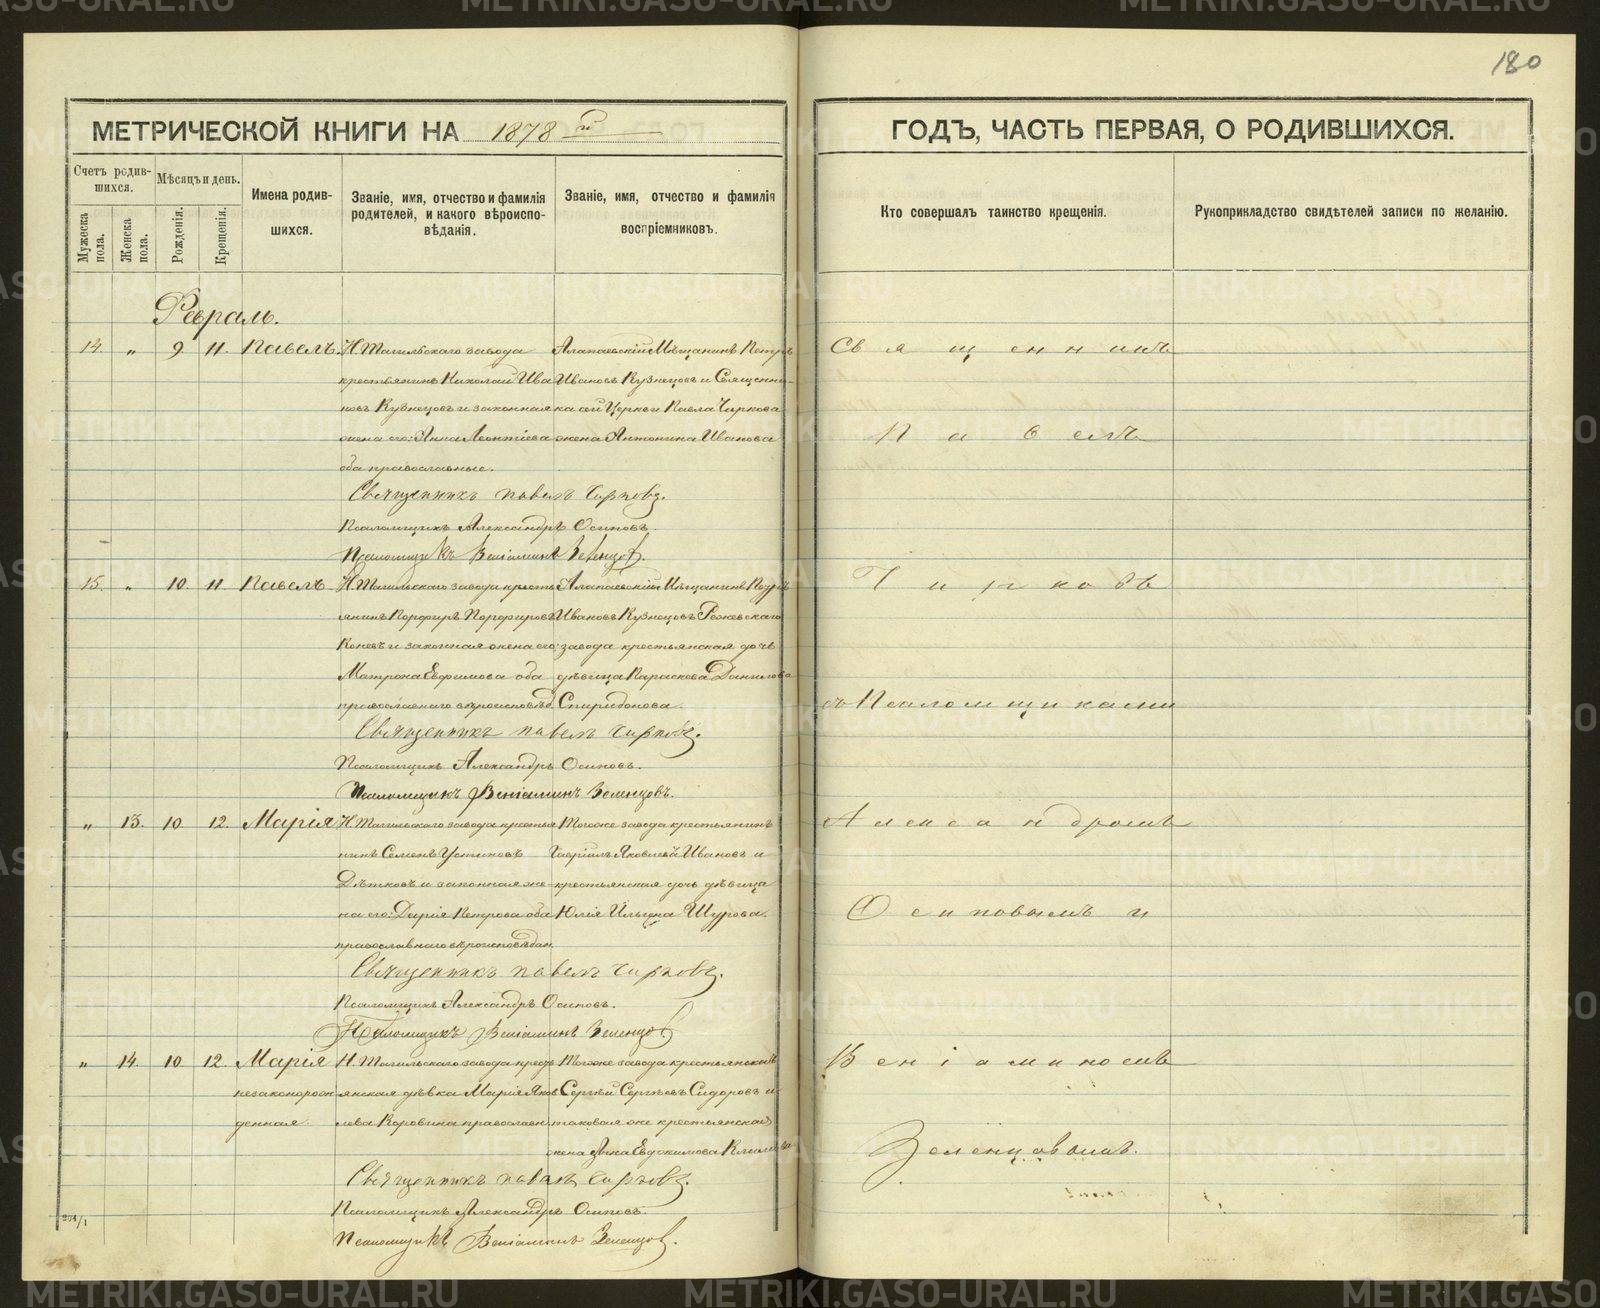 180
МЕТРИЧЕСКОЙ КНИГИ НА 1878 й
ГОДЪ, ЧАСТЬ ПЕРВАЯ, О РОДИВШИХСЯ.
Счетъ родив-
шихся.
Мужеска
пола.
Женска
пола.
Мѣсяцъ и день.
Рожденія.
Крещенія.
Имена родив-
шихся.
Званіе, имя, отчество и фамилія
родителей, и какого вѣроиспо-
вѣданія.
Званіе, имя, отчество и фамилія
воспріемниковъ.
Кто совершалъ таинство крещенія.
Рукоприкладство свидѣтелей записи по желанію.
Февраль.
14. „ 9. 11. Павелъ.
Н. Тагильскаго завода
крестьянинъ Николай Ива
новъ Кузнецовъ и законная
жена его: Анна Леонтіева
оба православные.
Алапаевскій Мѣщанинъ Петръ
Ивановъ Кузнецовъ и Священни-
ка сей Церкви Павла Чиркова
жена Антонина Иванова
Священникъ Павелъ Чирковъ.
Псаломщикъ Александръ Осиповъ.
Псаломщикъ Веніаминъ Зеленцов.
15. „ 10. 11. Павелъ.
Н. Тагильскаго завода кресть
янинъ Порфиръ Порфировъ
Коневъ и законная жена его:
Матрона Евфимова оба
православнаго вѣроисповѣд.
Алапаевскій Мѣщанинъ Петръ
Ивановъ Кузнецовъ Режевскаго
завода крестьянская дочь
дѣвица Параскова Данилова
Спиридонова.
Священникъ Павелъ Чирковъ.
Псаломщикъ Александръ Осиповъ.
Псаломщикъ Веніаминъ Зеленцовъ.
„ 13. 10. 12. Марія
Н. Тагильскаго завода крестья
нинъ Семенъ Устиновъ
Дѣтковъ и законная же-
на его: Дарія Петрова оба
православнаго вѣроисповѣдан.
Тогоже завода крестьянинъ
Гавріилъ Яковлевъ Ивановъ и
крестьянская дочь дѣвица
Юлія Ильина Шурова.
Священникъ Павелъ Чирковъ.
Псаломщикъ Александръ Осиповъ.
Псаломщикъ Веніаминъ Зеленцов.
„ 14. 10. 12. Марія
незаконорож
денная.
Н. Тагильскаго завода кресть
янская дѣвка Марія Яков
лева Коровина православн.
Тогоже завода крестьянскій
Сергѣй Сергѣевъ Сидоровъ и
таковая же крестьянская
жена Анна Евдокимова
Священникъ Павелъ Чирковъ.
Псаломщикъ Александръ Осиповъ.
Псаломщикъ Веніаминъ Зеленцов.
204/1
Священникъ
Павелъ
Чирковъ
съ Псаломщиками
Александромъ
Осиповымъ и
Веніаминомъ
Зеленцовымъ.
METRIKI.GASO-URAL.RU